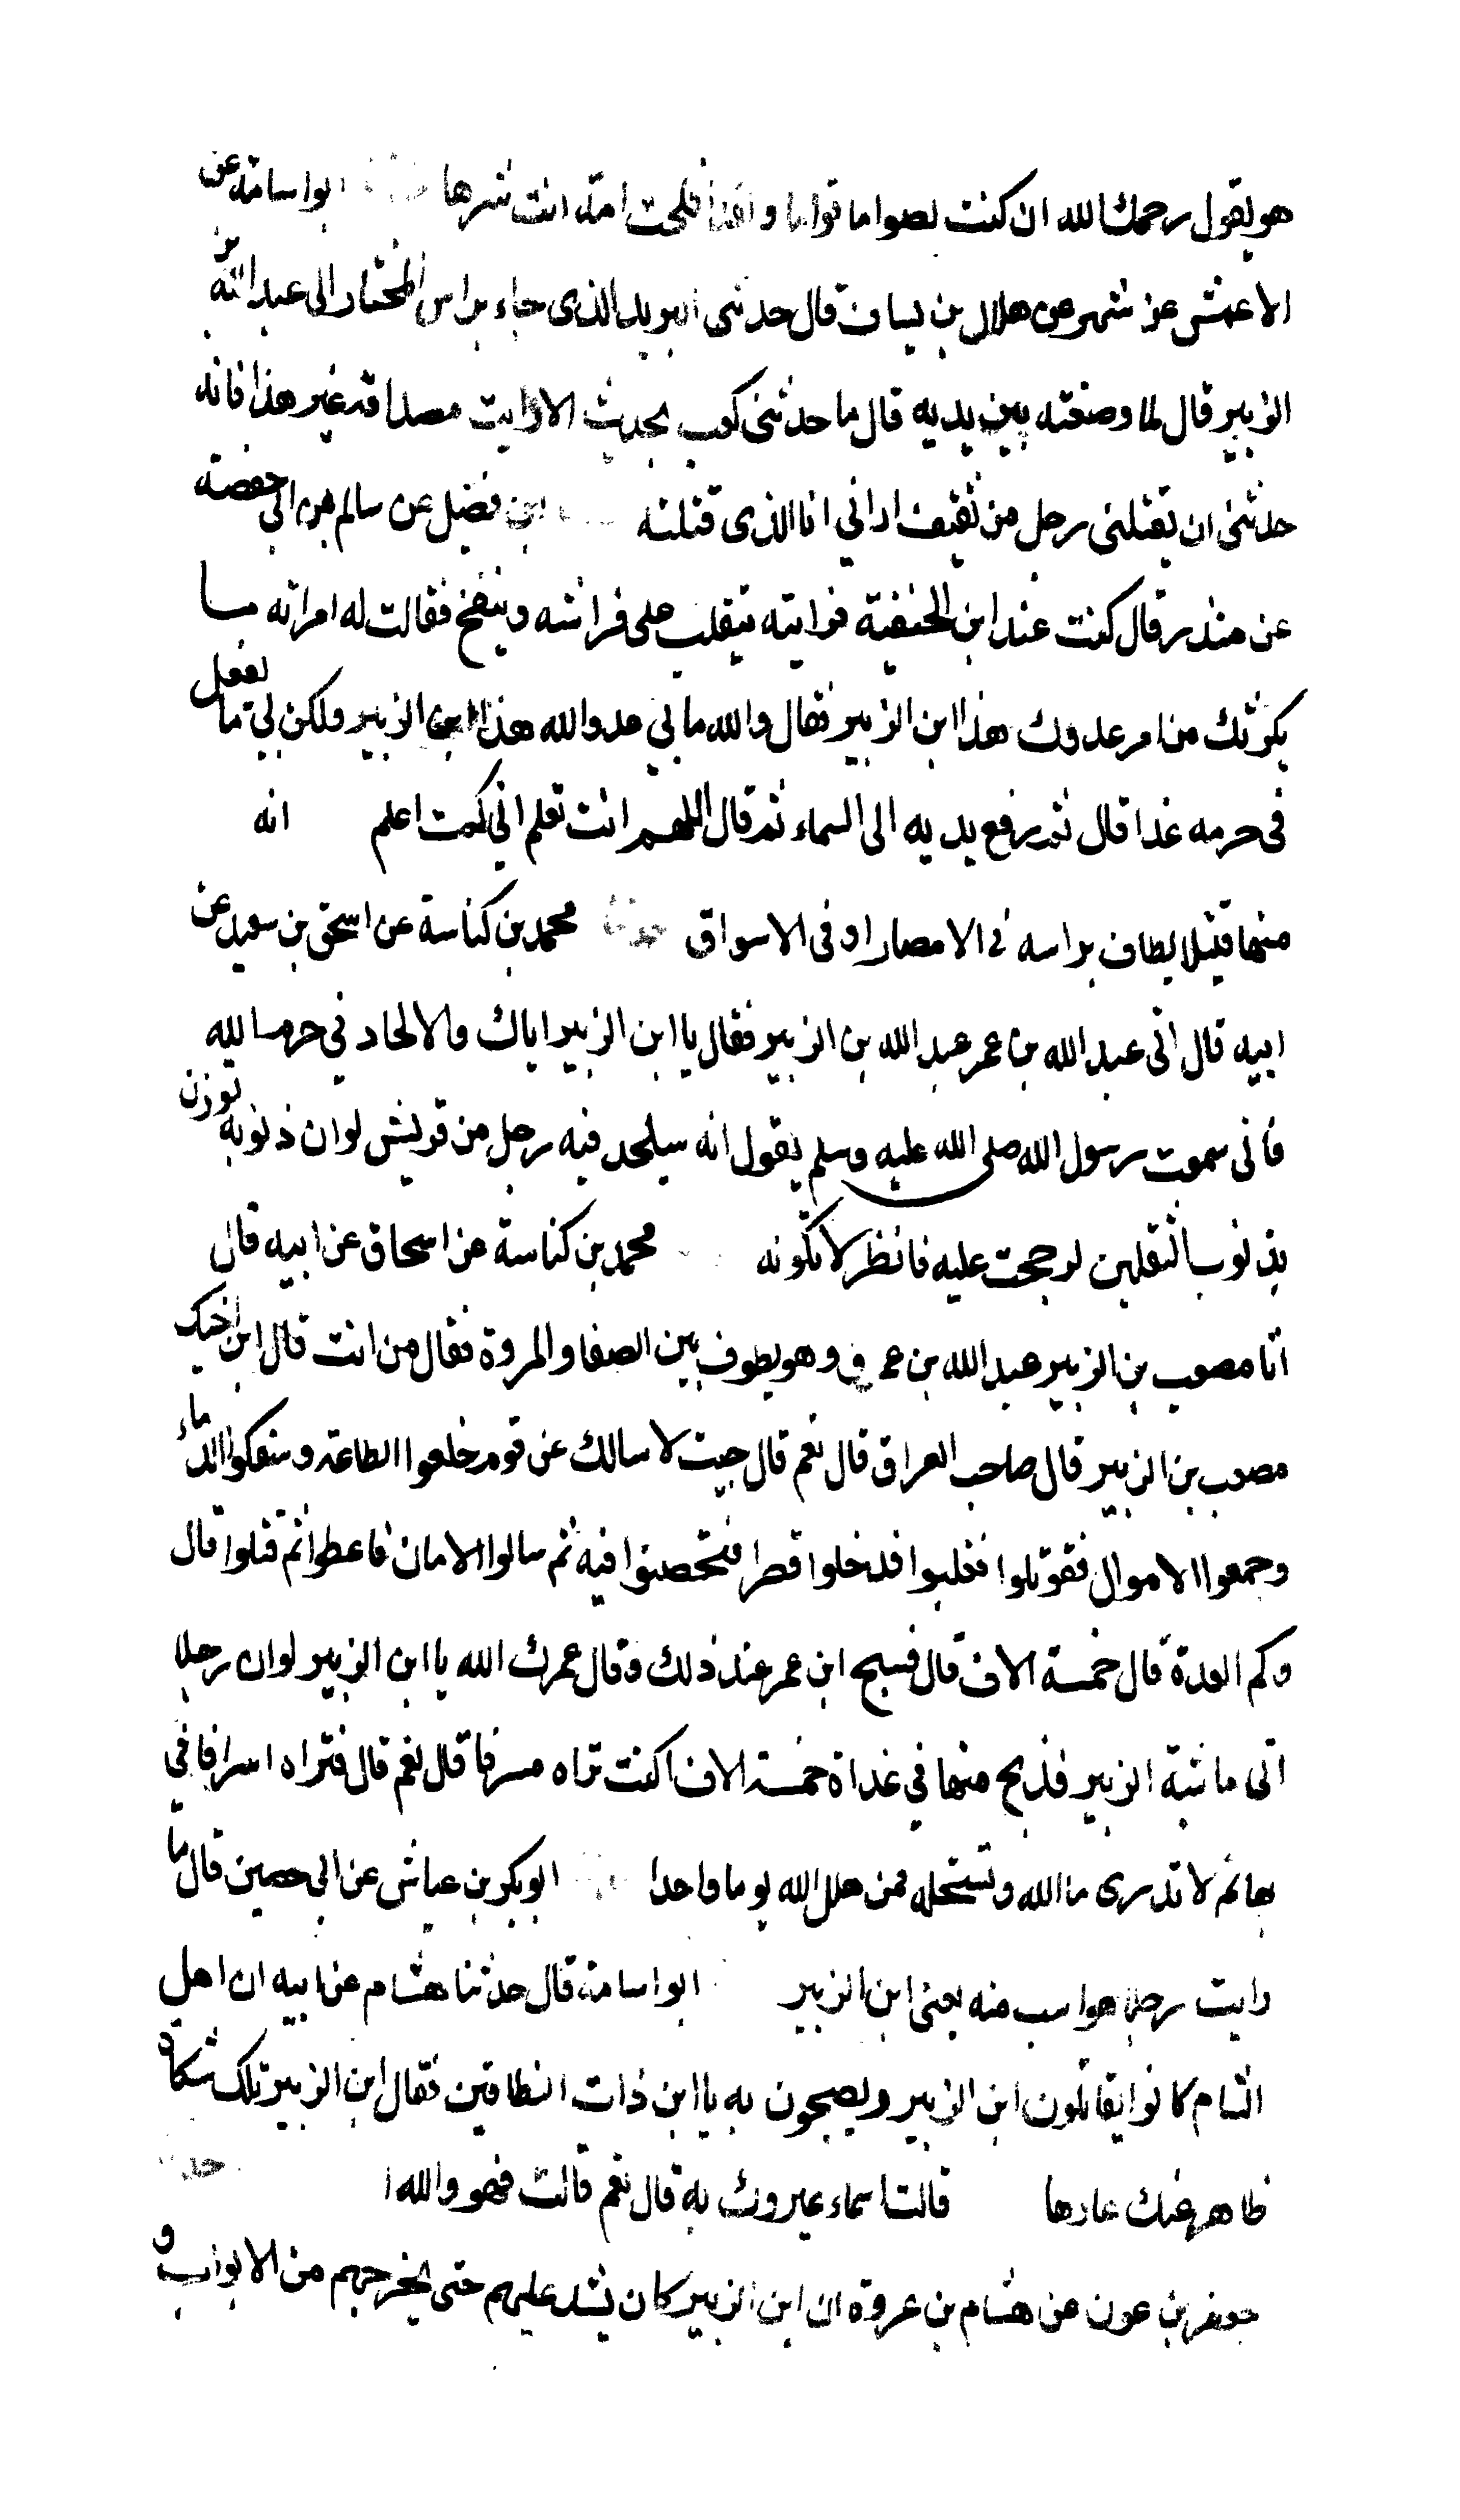 هو يقول رحمك الله ان كنت لصواما قواما و افلحت امة انت شرها ابو اسامة عن
الاعمش عن شمر عن هلال بن يساف قال حدثنى البريد الذى جاء براس المختار الى عبد الله بن
الزبير قال لما وضعته بين يديه قال ما حدثنى كعب بحديث الا رايت مصداقه غير هذا فانه
حدثنى ان يقتلنى رجل من ثقيف ارانى انا الذى قتلته ابن فضيل عن سالم بن ابى حفصة
عن منذر قال كنت عند ابن الحنفية فرايته يتقلب على فراشه وينفخ فقالت له امراته ما
يكرثك من امر عدوك هذا ابن الزبير فقال والله ما بى عدو الله هذا ابن الزبير ولكن بى ما يفعل
فى حرمه غدا قال ثم رفع يديه الى السماء ثم قال اللهم انت تعلم انى كنت اعلم انه
منها قتيلا يطاف براسه فى الامصار او فى الاسواق حدثنا محمد بن كناسة عن اسحق بن سعيد عن
ابيه قال اتى عبد الله بن عمر عبد الله بن الزبير فقال يا ابن الزبير اياك والالحاد فى حرم الله
فانى سمعت رسول الله صلى الله عليه وسلم يقول انه سيلحد فيه رجل من قريش لو ان ذنوبه توزن
بذنوب الثقلين لرجحت عليه فانظر لا تكونه محمد بن كناسة عن اسحاق عن ابيه قال
اتا مصعب بن الزبير عبد الله بن عمر و وهو يطوف بين الصفا والمروة فقال من انت قال ابن اخيك
مصعب بن الزبير قال صاحب العراق قال نعم قال جيت لاسالك عن قوم خلعوا الطاعة وسفكوا الدماء
وجمعوا الاموال فقوتلوا فغلبوا فدخلوا قصرا فتحصنوا فيه ثم سالوا الامان فاعطوا ثم قتلوا قال
وكم العدة قال خمسة الاف قال فسبح ابن عمر عند ذلك وقال عمرك الله يا ابن الزبير لو ان رجلا
اتى ماشية الزبير فذبح منها فى غداة خمسة الاف اكنت تراه مسرفا قال نعم قال فتراه اسرافا فى
بهائم لا تدرى ما الله وتستحله ممن هلل الله يوما واحدا ابو بكر بن عياش عن ابى حصين قال ما
رايت رجلا هو اسب منه يعنى ابن الزبير ابو اسامة قال حدثنا هشام عن ابيه ان اهل
الشام كانوا يقاتلون ابن الزبير ويصيحون به يا ابن ذات النطاقين فقال ابن الزبير تلك شكاة
ظاهر عنك عارها قالت اسماء عيروك به قال نعم قالت فهو والله ا حدثنا
جعفر بن عون عن هشام بن عروة ان ابن الزبير كان يشد عليهم حتى يخرجهم من الابواب و